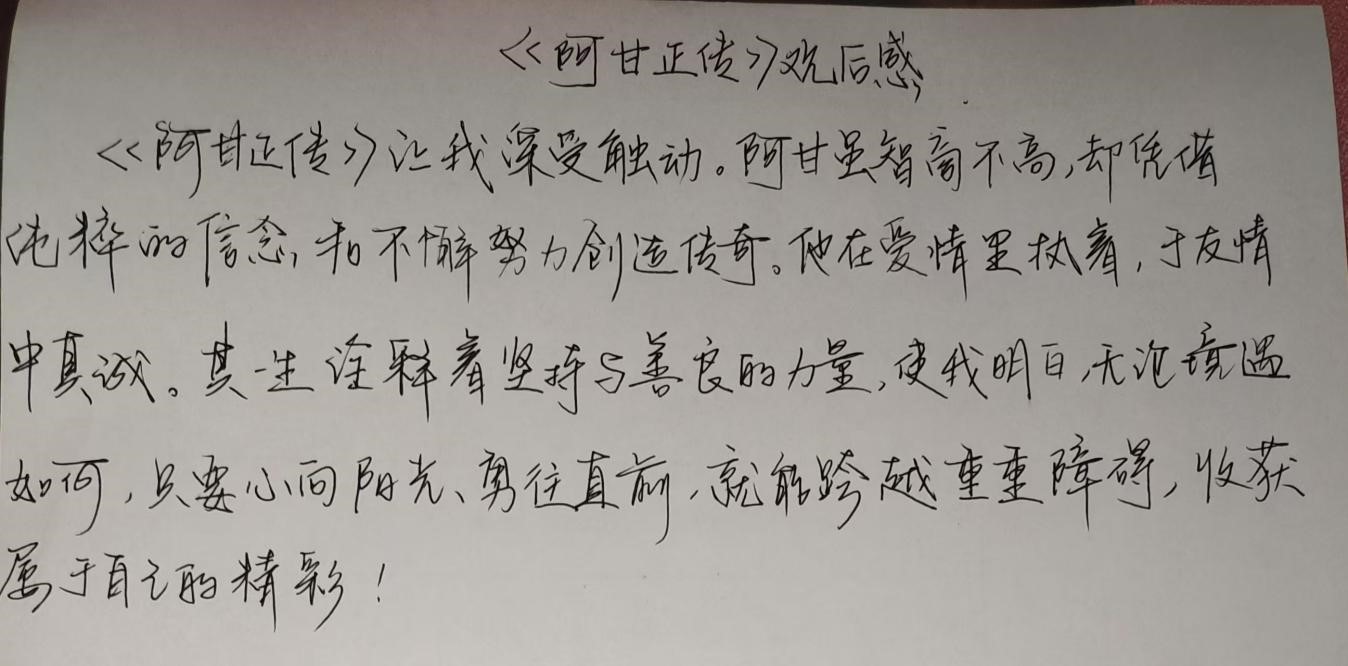 《阿甘正传》观后感
《阿甘正传》让我深受触动。阿甘虽智商不高,却凭借
纯粹的信念,和不懈努力创造传奇。他在爱情里执着,于友情
中真诚。其一生诠释着坚持与善良的力量,使我明白,无论境遇
如何,只要心向阳光、勇往直前,就能跨越重重障碍,收获
属于自己的精彩!